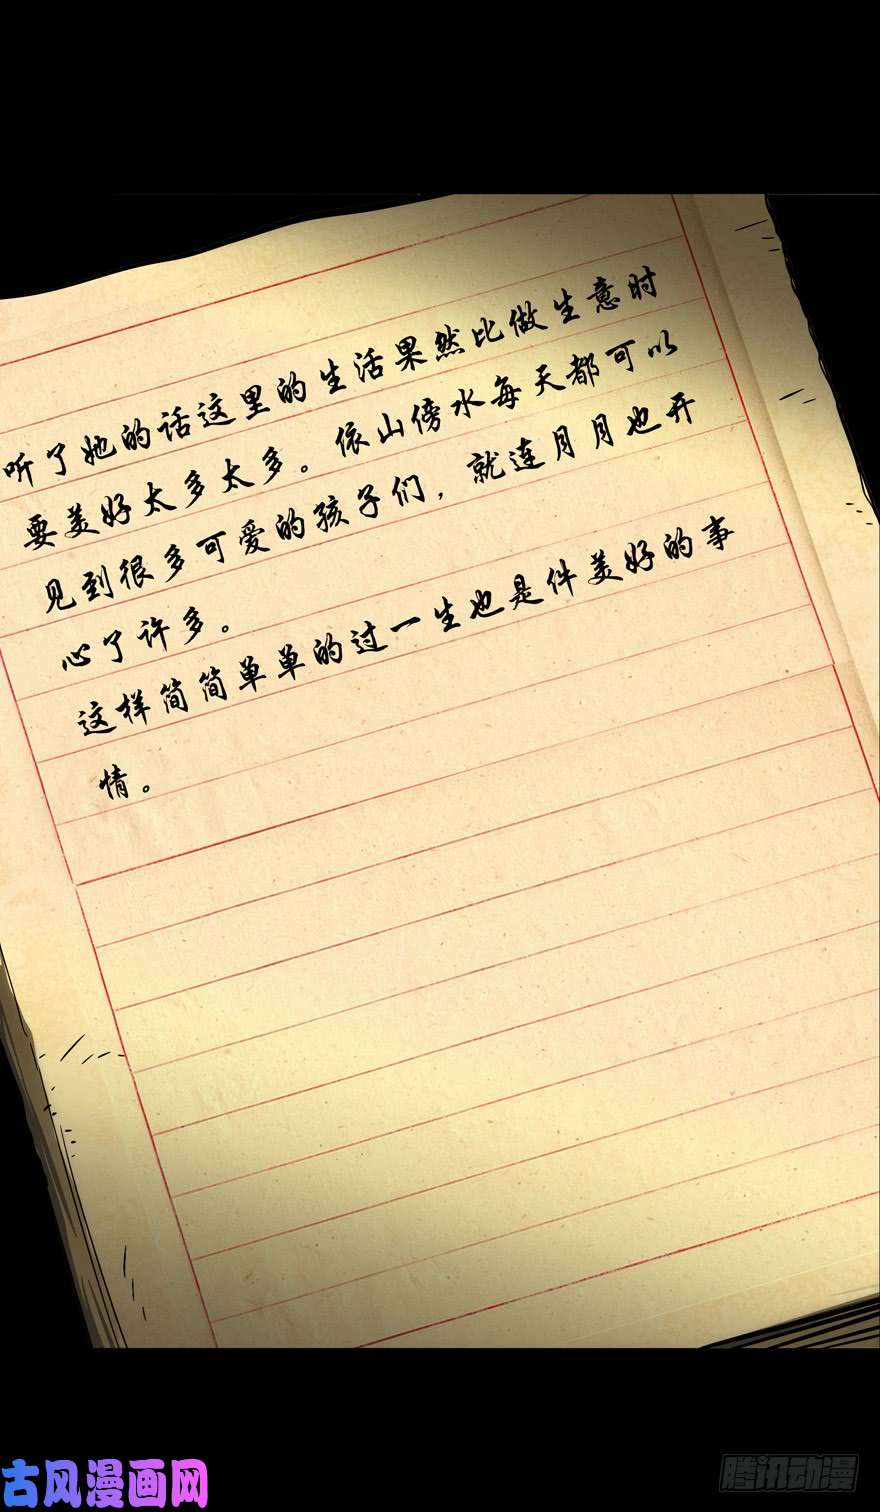 听了她的话这里的生活果然比做生意时
要美好太多太多。依山傍水每天都可以
见到很多可爱的孩子们，就连月月也开
心了许多。
这样简简单单的过一生也是件美好的事
情。
古风漫画网
腾讯动漫